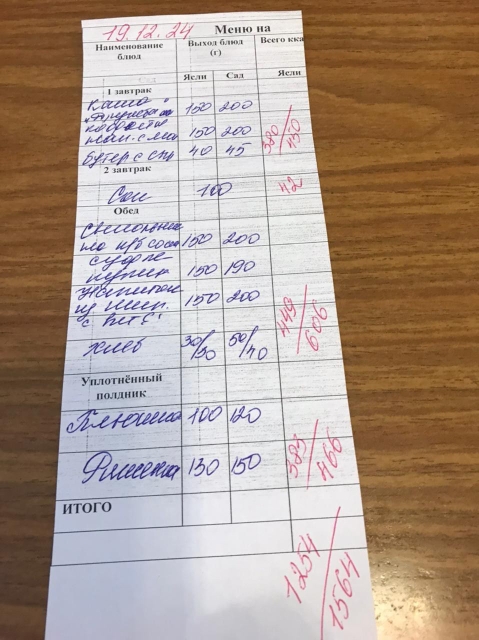 19.12.24 Меню на
Наименование блюд Выход блюд (г) Всего кка
Ясли Сад Ясли
1 завтрак
Каша 150 200
"Дружба"
нап. с мол 150 200 380/450
Бутер с 40 45
2 завтрак
Сок 100 42
Обед
Свекольник
150 200
суфле
150 190
Напиток
из шип. 150 200 449/606
с вит "С"
хлеб 30/30 50/40
Уплотнённый полдник
100 120
Ряженка 130 150 383/466
ИТОГО
1254/1564